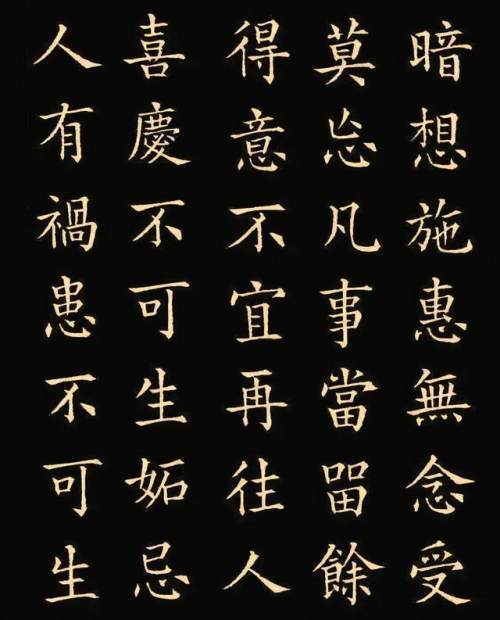 暗想施惠無念受
莫忘凡事當留餘
得意不宜再往人
喜慶不可生妬忌
人有禍患不可生